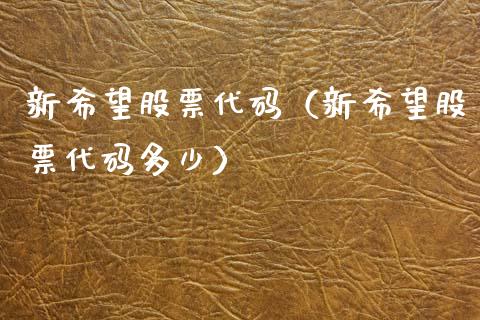 新希望股票代码（新希望股
票代码多少）